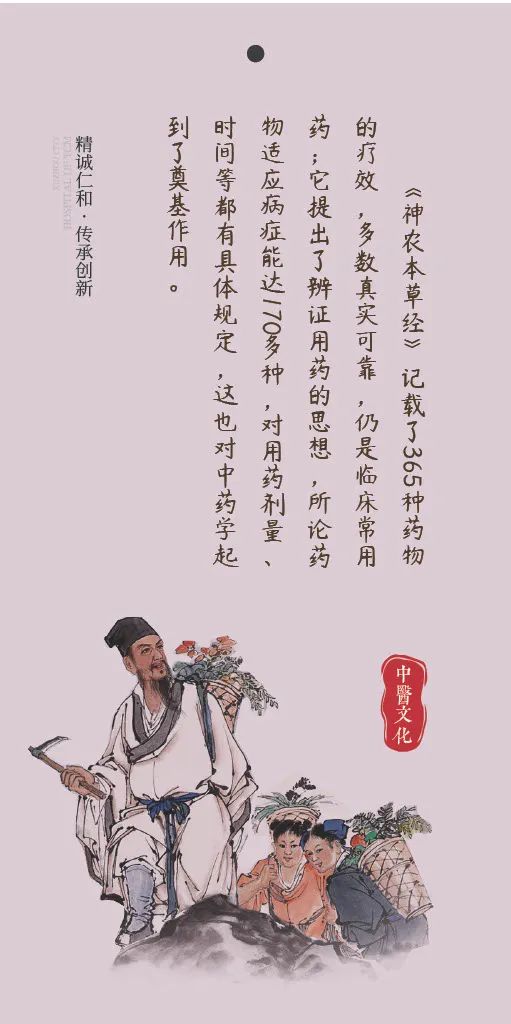 《神农本草经》记载了365种药物
的疗效，多数真实可靠，仍是临床常用
药；它提出了辨证用药的思想，所论药
物适应病症能达170多种，对用药剂量、
时间等都有具体规定，这也对中药学起
到了奠基作用。
精诚仁和·传承创新
中醫文化